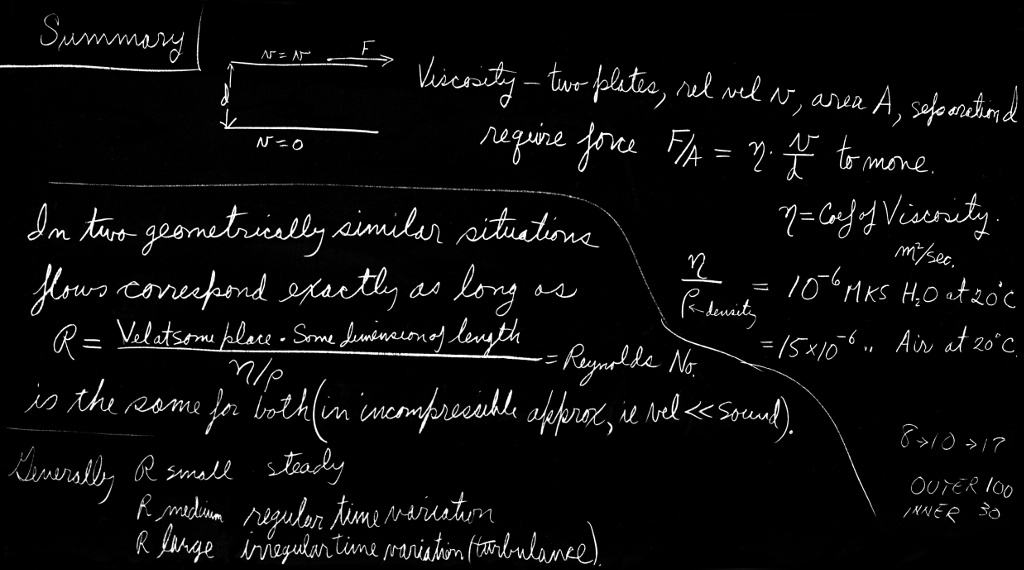 Summary
v = v F
d
v = 0
Viscosity – two plates, rel vel v, area A, separation d
require force F/A = η · v/d to move.
η = Coef of Viscosity.
m²/sec.
η/ρ ← density = 10⁻⁶ MKS H₂O at 20°C
= 15×10⁻⁶ " Air at 20°C.
In two geometrically similar situations
flows correspond exactly as long as
R = Vel at some place · Some dimension of length / η/ρ = Reynolds No.
is the same for both (in incompressible approx, ie vel << sound).
Generally R small steady
R medium regular time variation
R large irregular time variation (turbulance).
8→10→17
OUTER 100
INNER 30